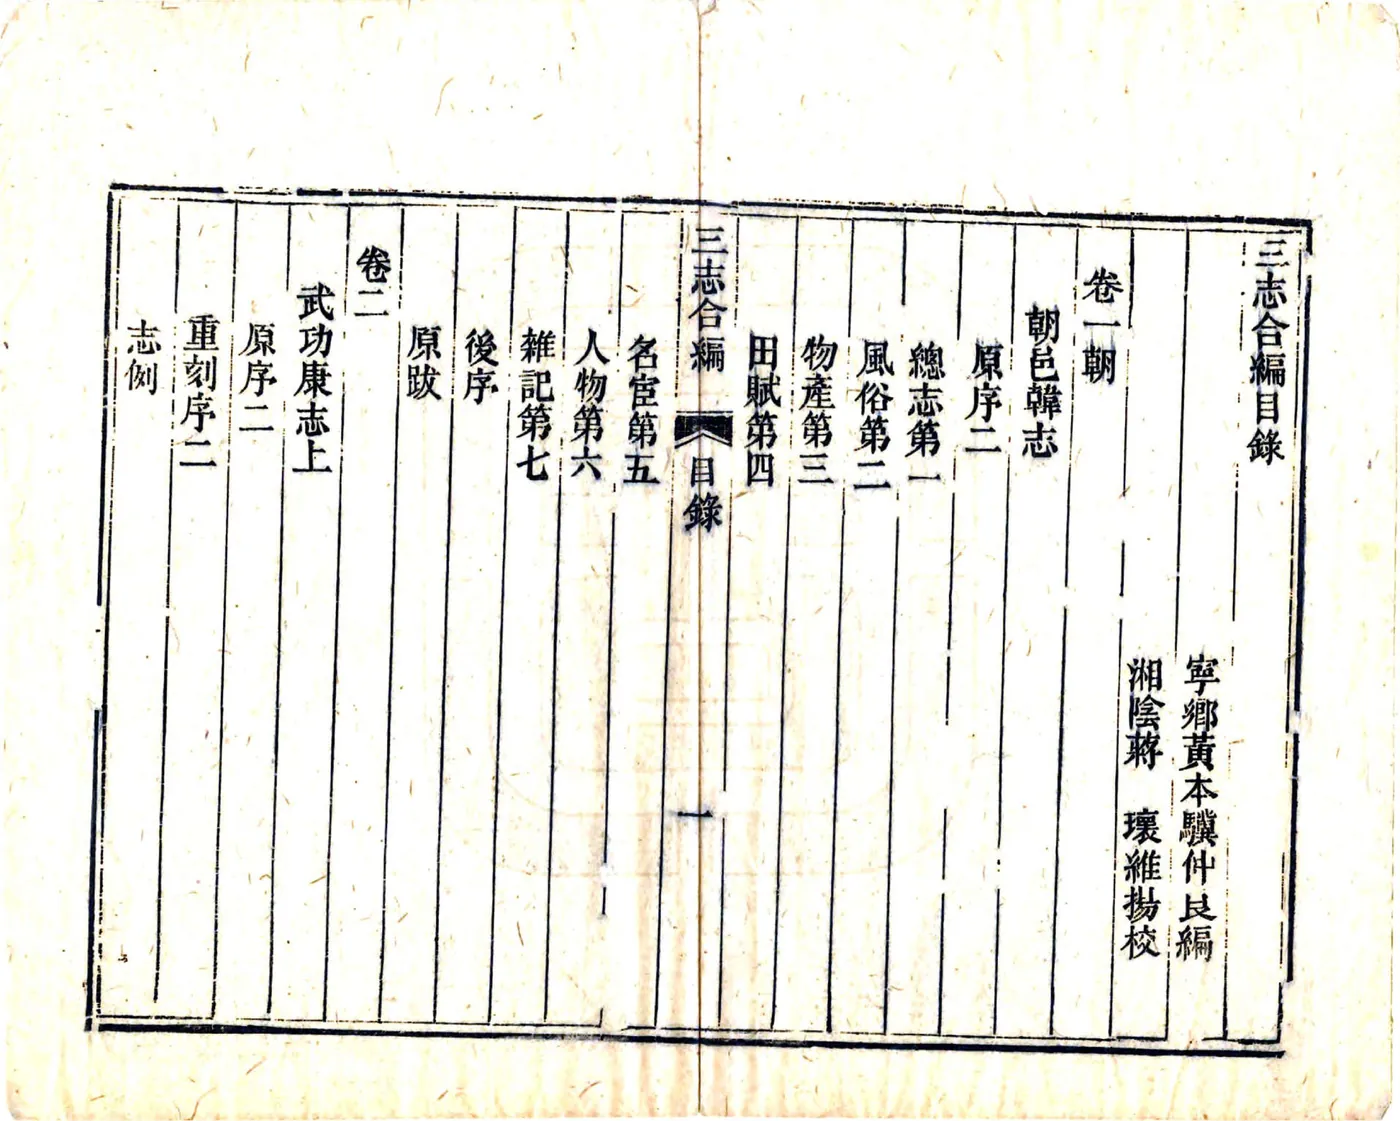 三志合編目錄
寧鄉黃本驥仲良編
湘陰蔣　瓌維揚校
卷一朝
朝邑韓志
原序二
總志第一
風俗第二
物產第三
田賦第四
三志合編　目錄　一
名宦第五
人物第六
雜記第七
後序
原跋
卷二
武功康志上
原序二
重刻序二
志例